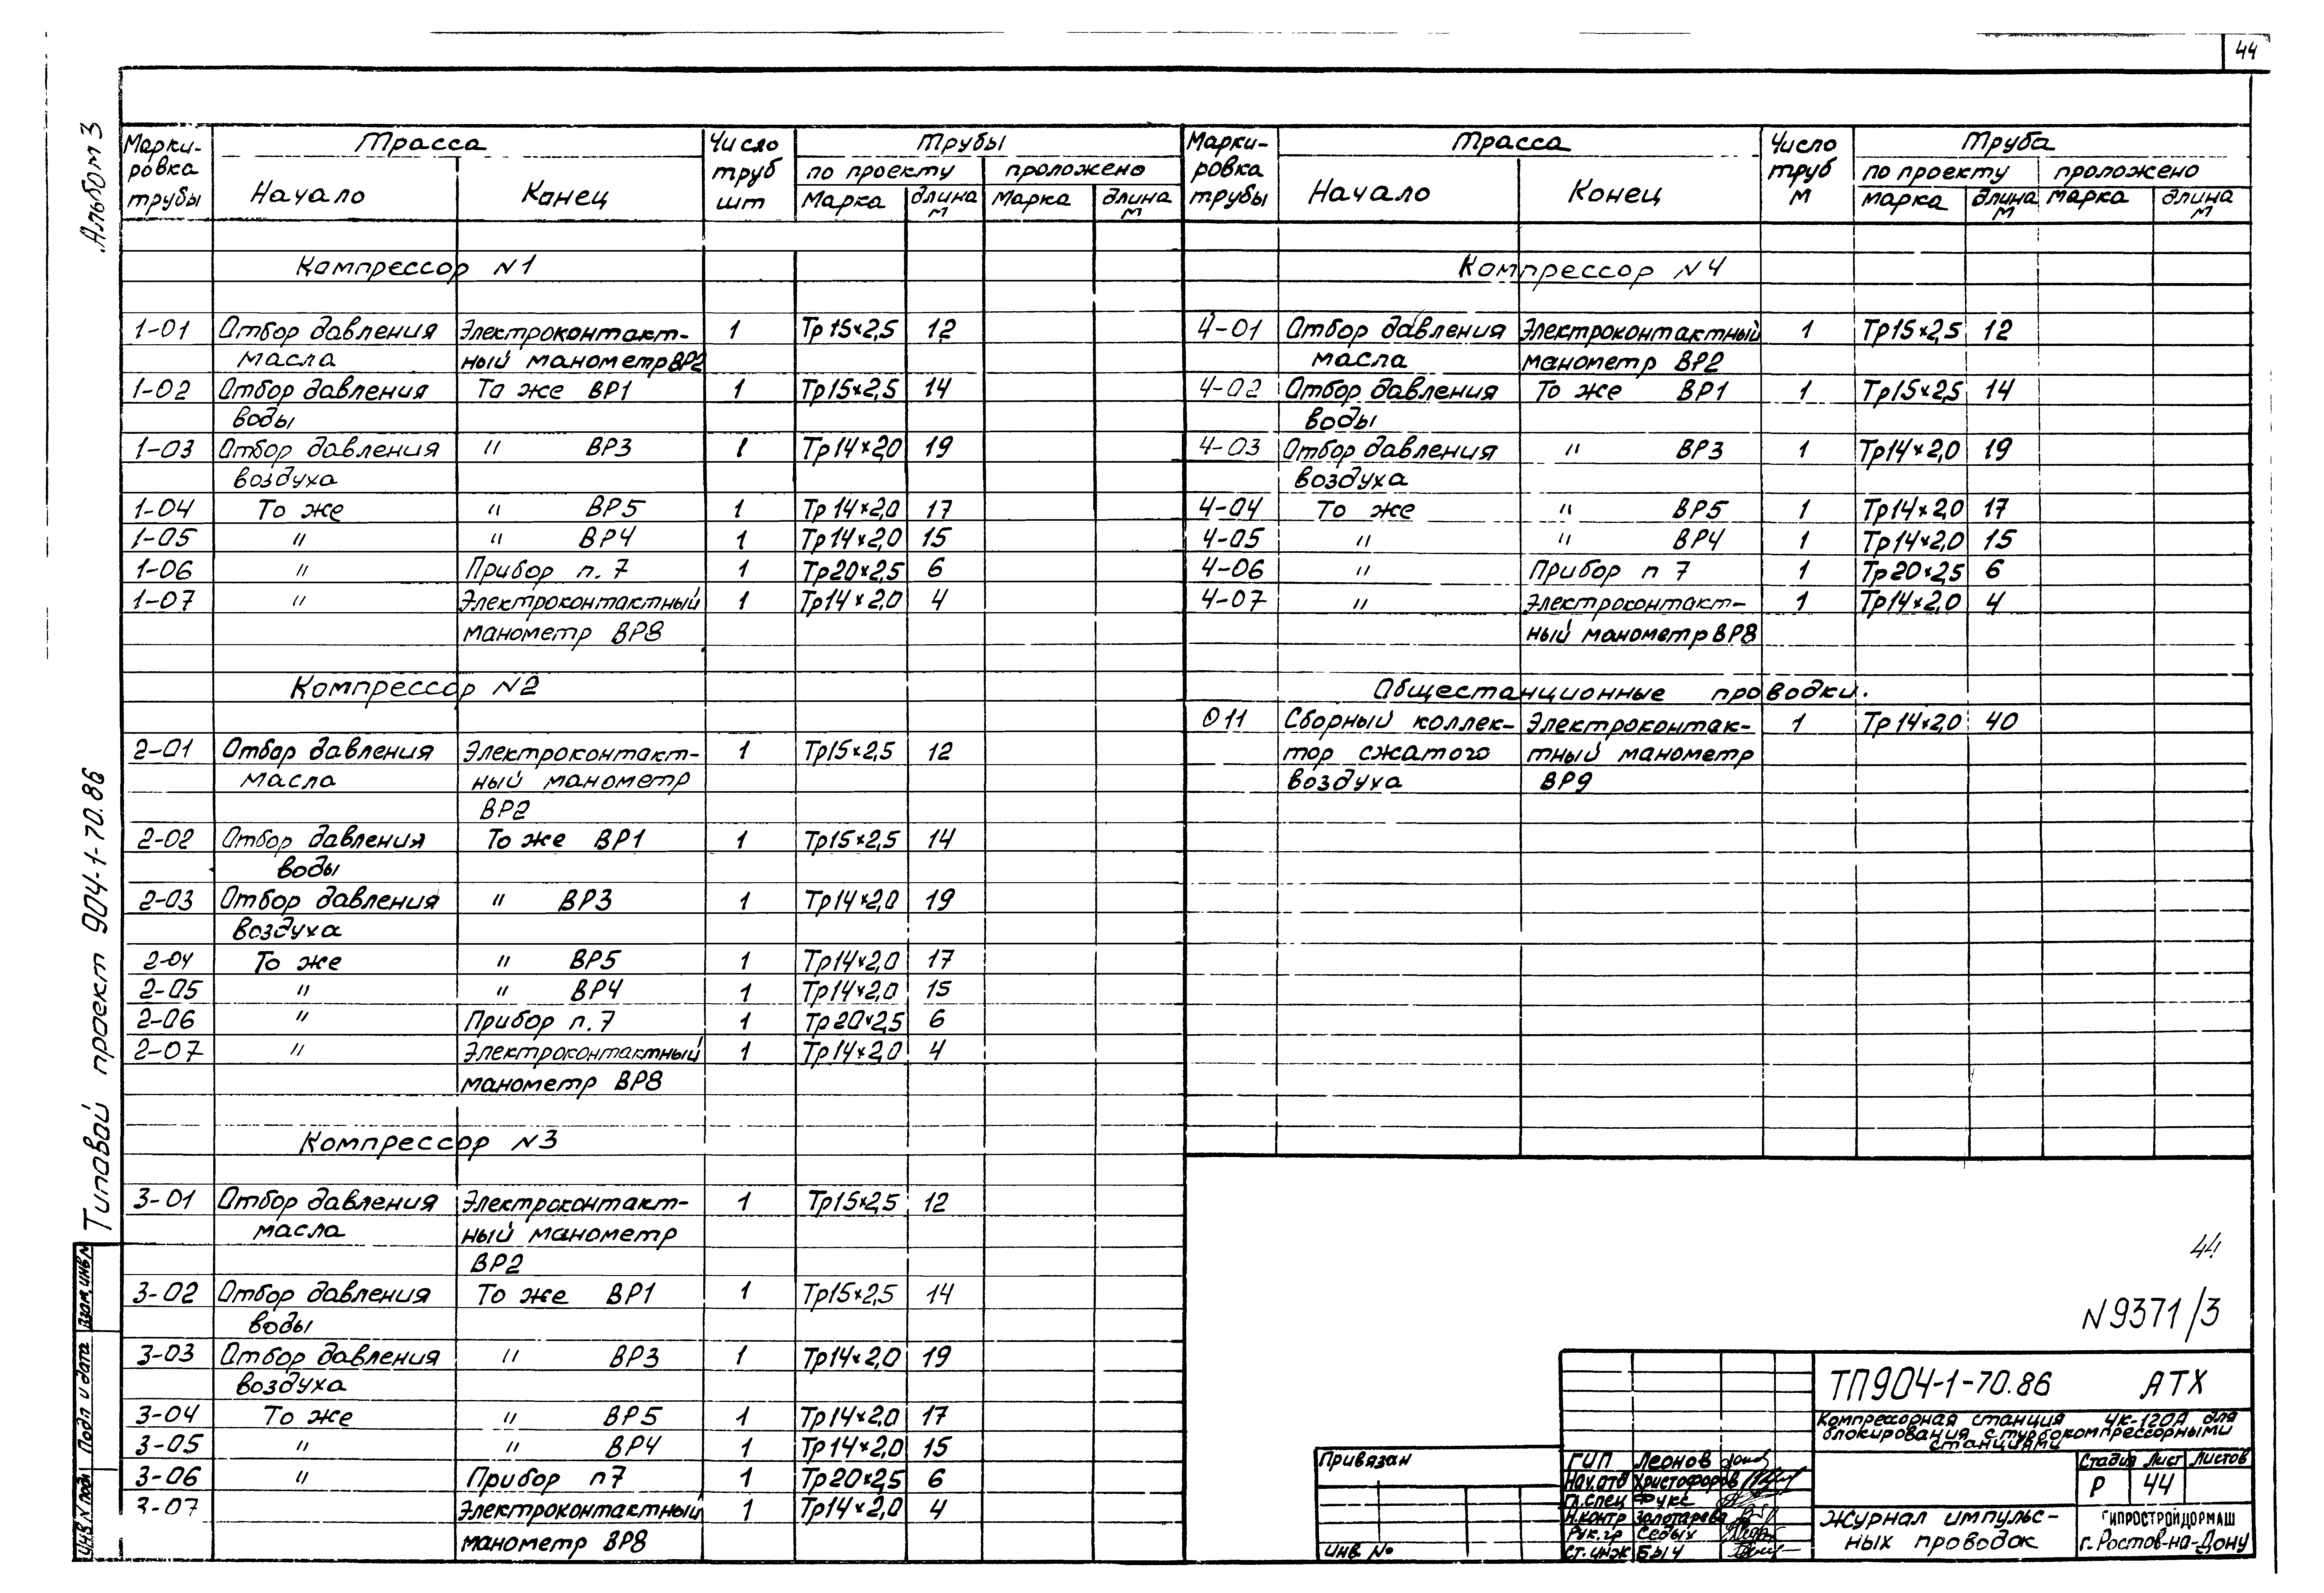 44
Альбом 3
Типовой проект 904-1-70.86
Взам. инв. №
Подп и дата
Инв. № подл
Марки- Трасса Число Трубы
ровка Начало Конец труб по проекту проложено
трубы шт Марка длина м Марка длина м
Компрессор N1
1-01 Отбор давления Электроконтакт- 1 Тр15×2,5 12
масла ный манометр ВР2
1-02 Отбор давления То же ВР1 1 Тр15×2,5 14
воды
1-03 Отбор давления " ВР3 1 Тр14×2,0 19
воздуха
1-04 То же " ВР5 1 Тр14×2,0 17
1-05 " " ВР4 1 Тр14×2,0 15
1-06 " Прибор п.7 1 Тр20×2,5 6
1-07 " Электроконтактный 1 Тр14×2,0 4
манометр ВР8
Компрессор N2
2-01 Отбор давления Электроконтакт- 1 Тр15×2,5 12
масла ный манометр
ВР2
2-02 Отбор давления То же ВР1 1 Тр15×2,5 14
воды
2-03 Отбор давления " ВР3 1 Тр14×2,0 19
воздуха
2-04 То же " ВР5 1 Тр14×2,0 17
2-05 " " ВР4 1 Тр14×2,0 15
2-06 " Прибор п.7 1 Тр20×2,5 6
2-07 " Электроконтактный 1 Тр14×2,0 4
манометр ВР8
Компрессор N3
3-01 Отбор давления Электроконтакт- 1 Тр15×2,5 12
масла ный манометр
ВР2
3-02 Отбор давления То же ВР1 1 Тр15×2,5 14
воды
3-03 Отбор давления " ВР3 1 Тр14×2,0 19
воздуха
3-04 То же " ВР5 1 Тр14×2,0 17
3-05 " " ВР4 1 Тр14×2,0 15
3-06 " Прибор п7 1 Тр20×2,5 6
3-07 Электроконтактный 1 Тр14×2,0 4
манометр ВР8
Марки- Трасса Число Труба
ровка Начало Конец труб по проекту проложено
трубы м марка длина м марка длина м
Компрессор N4
4-01 Отбор давления Электроконтактный 1 Тр15×2,5 12
масла манометр ВР2
4-02 Отбор давления То же ВР1 1 Тр15×2,5 14
воды
4-03 Отбор давления " ВР3 1 Тр14×2,0 19
воздуха
4-04 То же " ВР5 1 Тр14×2,0 17
4-05 " " ВР4 1 Тр14×2,0 15
4-06 " Прибор п 7 1 Тр20×2,5 6
4-07 " Электроконтакт- 1 Тр14×2,0 4
ный манометр ВР8
Общестанционные проводки.
011 Сборный коллек- Электроконтак- 1 Тр14×2,0 40
тор сжатого тный манометр
воздуха ВР9
44
N9371/3
ТП904-1-70.86 АТХ
Компрессорная станция 4К-120А для
блокирования с турбокомпрессорными
станциями
Привязан
Инв №
ГИП Леонов
Нач.отд Христофоров
Гл.спец Фукс
Н.контр Золотарева
Рук.гр Седых
Ст.инж Быч
Стадия Лист Листов
Р 44
Журнал импульс-
ных проводок
ГИПРОСТРОЙДОРМАШ
г.Ростов-на-Дону